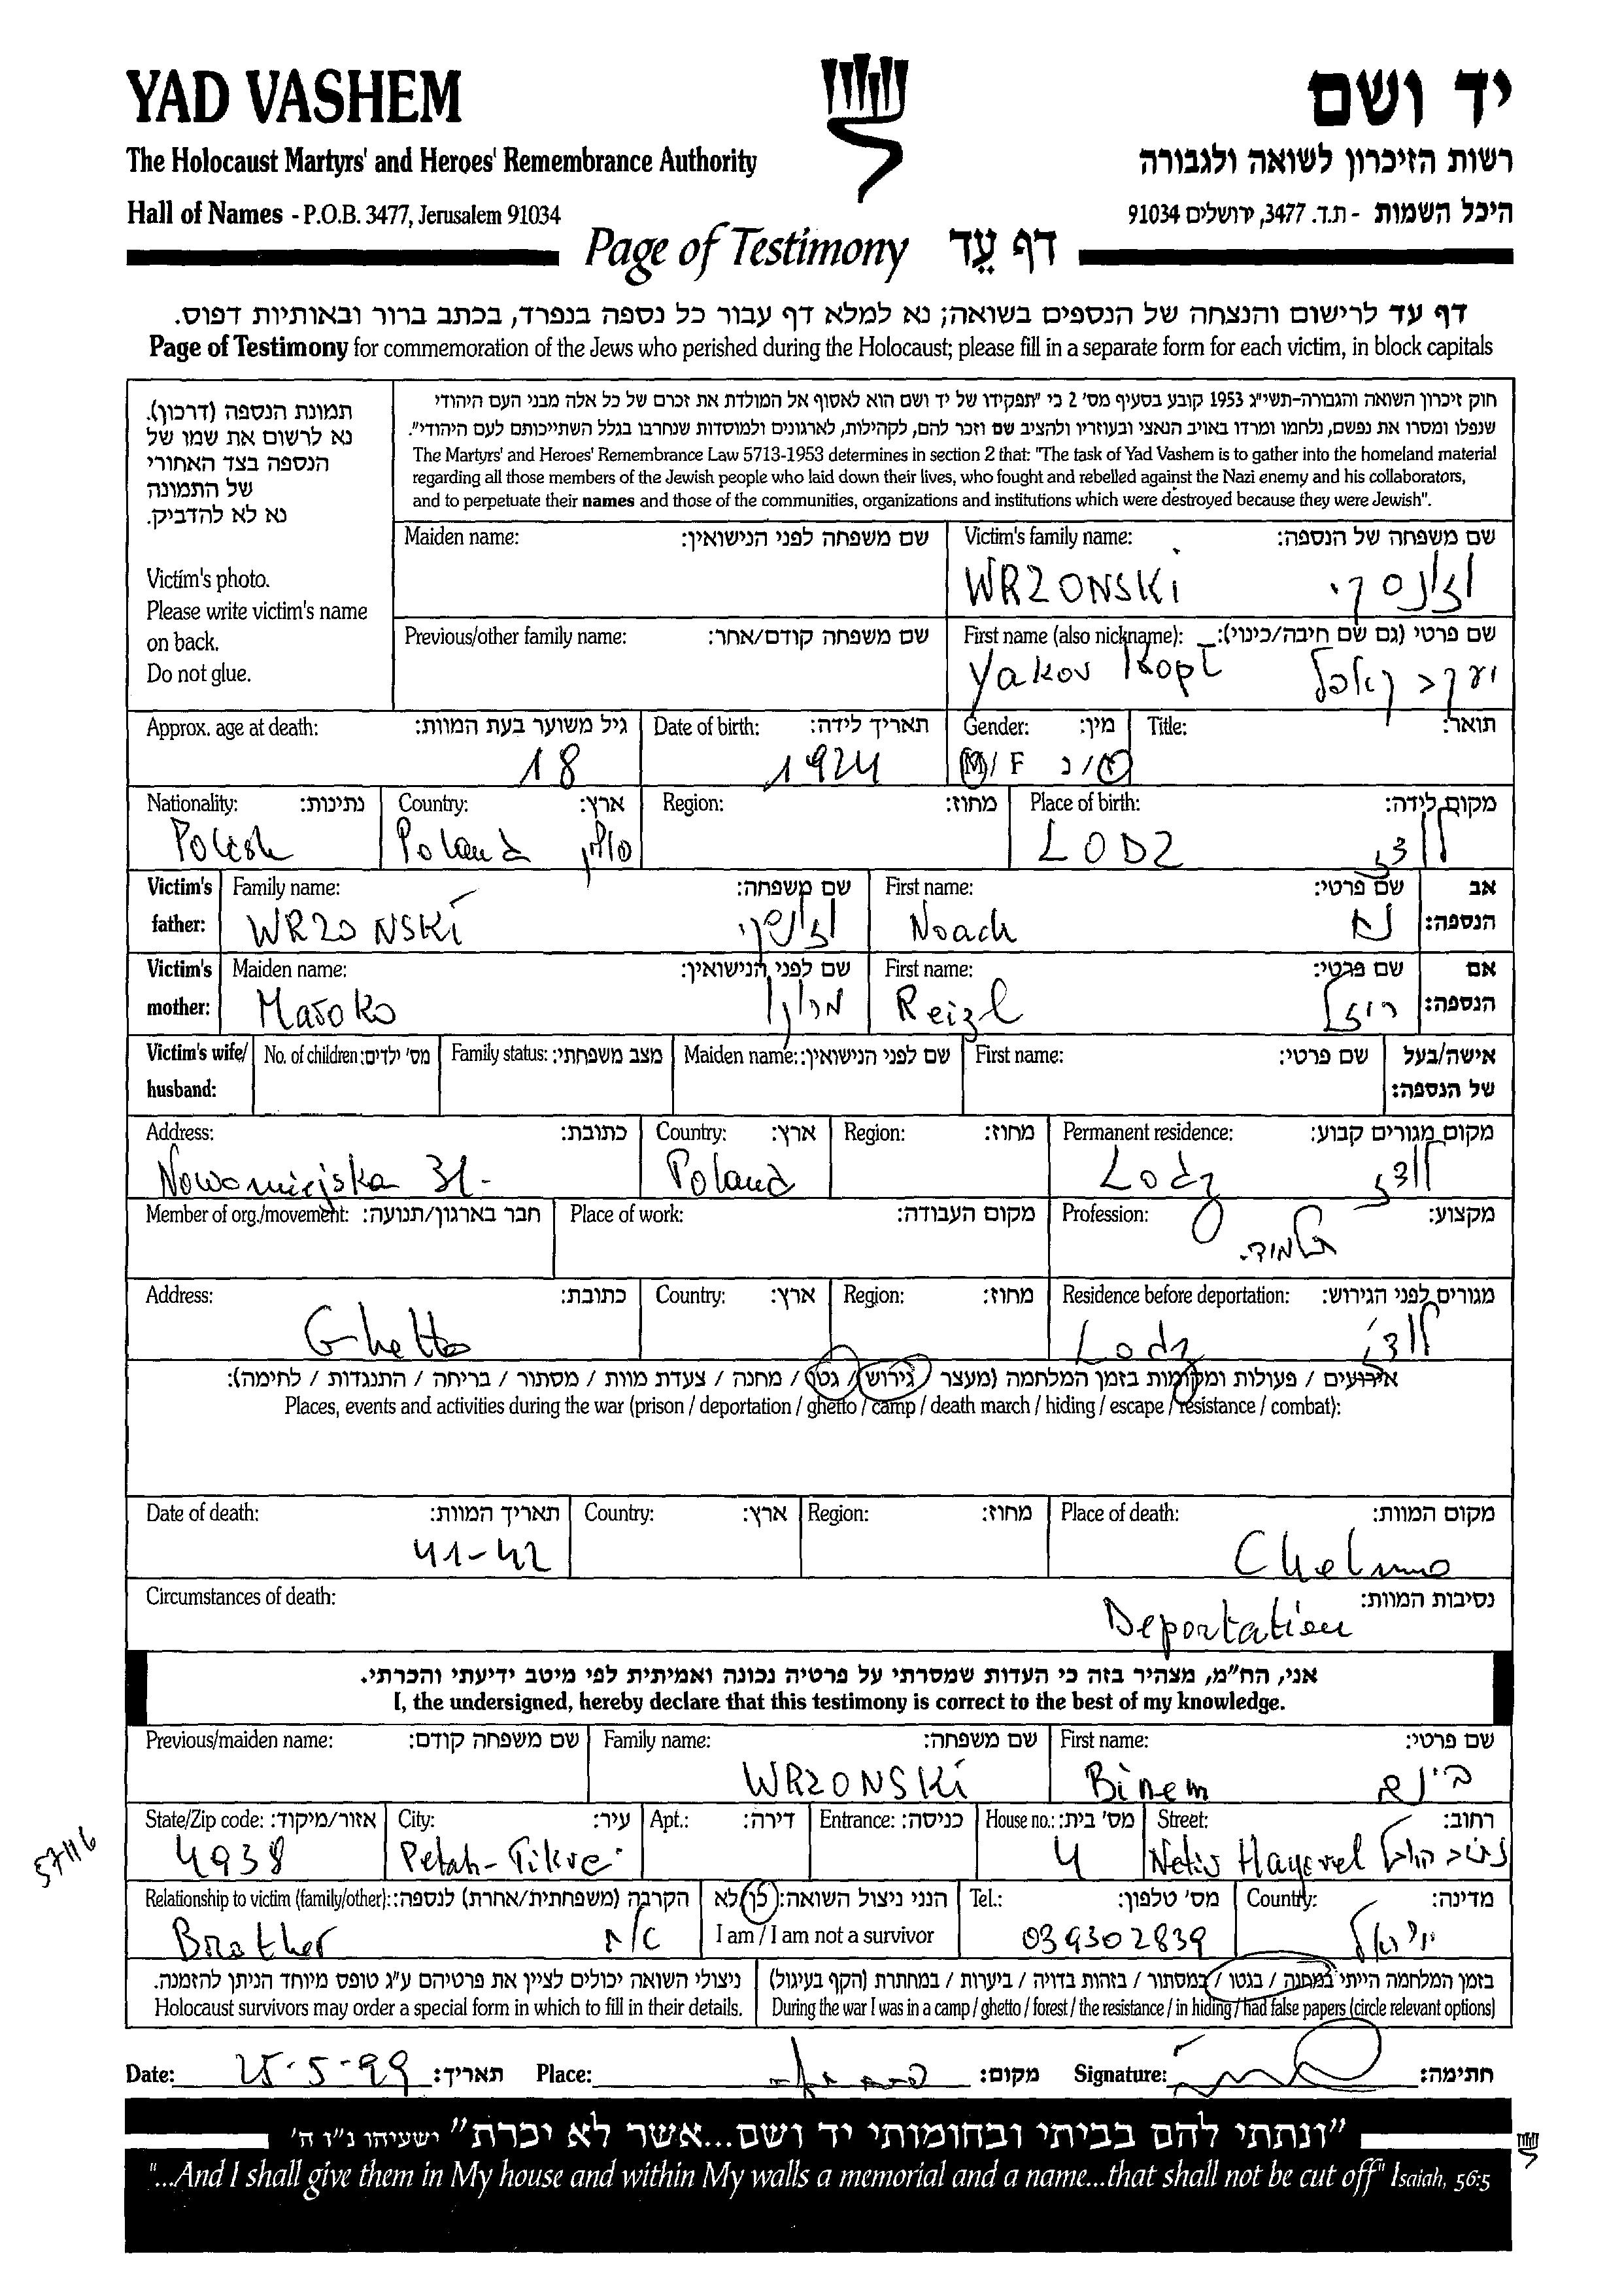 YAD VASHEM
יד ושם
The Holocaust Martyrs' and Heroes' Remembrance Authority
רשות הזיכרון לשואה ולגבורה
Hall of Names - P.O.B. 3477, Jerusalem 91034
היכל השמות - ת.ד. 3477, ירושלים 91034
Page of Testimony דף עֵד
דף עד לרישום והנצחה של הנספים בשואה; נא למלא דף עבור כל נספה בנפרד, בכתב ברור ובאותיות דפוס.
Page of Testimony for commemoration of the Jews who perished during the Holocaust; please fill in a separate form for each victim, in block capitals
תמונת הנספה (דרכון).
נא לרשום את שמו של
הנספה בצד האחורי
של התמונה
נא לא להדביק.
Victim's photo.
Please write victim's name
on back.
Do not glue.
חוק זיכרון השואה והגבורה-תשי"ג 1953 קובע בסעיף מס' 2 כי "תפקידו של יד ושם הוא לאסוף אל המולדת את זכרם של כל אלה מבני העם היהודי
שנפלו ומסרו את נפשם, נלחמו ומרדו באויב הנאצי ובעוזריו ולהציב שם וזכר להם, לקהילות, לארגונים ולמוסדות שנחרבו בגלל השתייכותם לעם היהודי".
The Martyrs' and Heroes' Remembrance Law 5713-1953 determines in section 2 that: "The task of Yad Vashem is to gather into the homeland material
regarding all those members of the Jewish people who laid down their lives, who fought and rebelled against the Nazi enemy and his collaborators,
and to perpetuate their names and those of the communities, organizations and institutions which were destroyed because they were Jewish".
Maiden name: שם משפחה לפני הנישואין:
Victim's family name: שם משפחה של הנספה:
WRZONSKI וז'ונסקי
Previous/other family name: שם משפחה קודם/אחר:
First name (also nickname): שם פרטי (גם שם חיבה/כינוי):
Yakov Kopl יעקב קאפל
Approx. age at death: גיל משוער בעת המוות:
18
Date of birth: תאריך לידה:
1924
Gender: מין:
M / F ז / נ
Title: תואר:
Nationality: נתינות:
Polish
Country: ארץ:
Poland פולין
Region: מחוז:
Place of birth: מקום לידה:
LODZ לודז'
Victim's father: Family name: שם משפחה:
WRZONSKI
First name: שם פרטי: אב הנספה:
Noach נח
Victim's mother: Maiden name: שם לפני הנישואין:
Maroko מרוקו
First name: שם פרטי: אם הנספה:
Reizl רייזל
Victim's wife/ husband: No. of children: מס' ילדים: Family status: מצב משפחתי: Maiden name: שם לפני הנישואין: First name: שם פרטי: אישה/בעל של הנספה:
Address: כתובת:
Nowomiejska 31-
Country: ארץ:
Poland
Region: מחוז:
Permanent residence: מקום מגורים קבוע:
Lodz לודז'
Member of org./movement: חבר בארגון/תנועה: Place of work: מקום העבודה: Profession: מקצוע:
תלמיד.
Address: כתובת:
Ghetto
Country: ארץ: Region: מחוז:
Residence before deportation: מגורים לפני הגירוש:
Lodz לודז'
אירועים / פעולות ומקומות בזמן המלחמה (מעצר / גירוש / גטו / מחנה / צעדת מוות / מסתור / בריחה / התנגדות / לחימה):
Places, events and activities during the war (prison / deportation / ghetto / camp / death march / hiding / escape / resistance / combat):
Date of death: תאריך המוות:
41-42
Country: ארץ: Region: מחוז:
Place of death: מקום המוות:
Chelmno
Circumstances of death: נסיבות המוות:
Deportation
אני, הח"מ, מצהיר בזה כי העדות שמסרתי על פרטיה נכונה ואמיתית לפי מיטב ידיעתי והכרתי.
I, the undersigned, hereby declare that this testimony is correct to the best of my knowledge.
Previous/maiden name: שם משפחה קודם:
Family name: שם משפחה:
WRZONSKI
First name: שם פרטי:
Binem בינם
State/Zip code: אזור/מיקוד:
4938
City: עיר:
Petah-Tikva
Apt.: דירה: Entrance: כניסה:
House no.: מס' בית:
4
Street: רחוב:
Netiv
57116
Relationship to victim (family/other): הקרבה (משפחתית/אחרת) לנספה:
Brother אח
הנני ניצול השואה: כן/לא
I am / I am not a survivor
Tel.: מס' טלפון:
039302839
Country: מדינה:
ישראל
ניצולי השואה יכולים לציין את פרטיהם ע"ג טופס מיוחד הניתן להזמנה.
Holocaust survivors may order a special form in which to fill in their details.
בזמן המלחמה הייתי במחנה / בגטו / במסתור / בזהות בדויה / ביערות / במחתרת (הקף בעיגול)
During the war I was in a camp / ghetto / forest / the resistance / in hiding / had false papers (circle relevant options)
Date: 25-5-99 תאריך: Place: מקום: Signature: חתימה:
"ונתתי להם בביתי ובחומותי יד ושם...אשר לא יכרת" ישעיהו נ"ו ה'
"...And I shall give them in My house and within My walls a memorial and a name...that shall not be cut off" Isaiah, 56:5